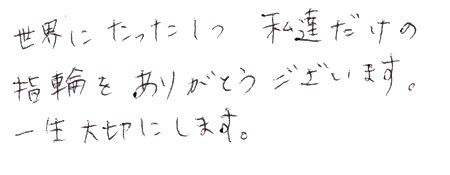 世界にたった1つ 私達だけの
指輪をありがとうございます。
一生大切にします。